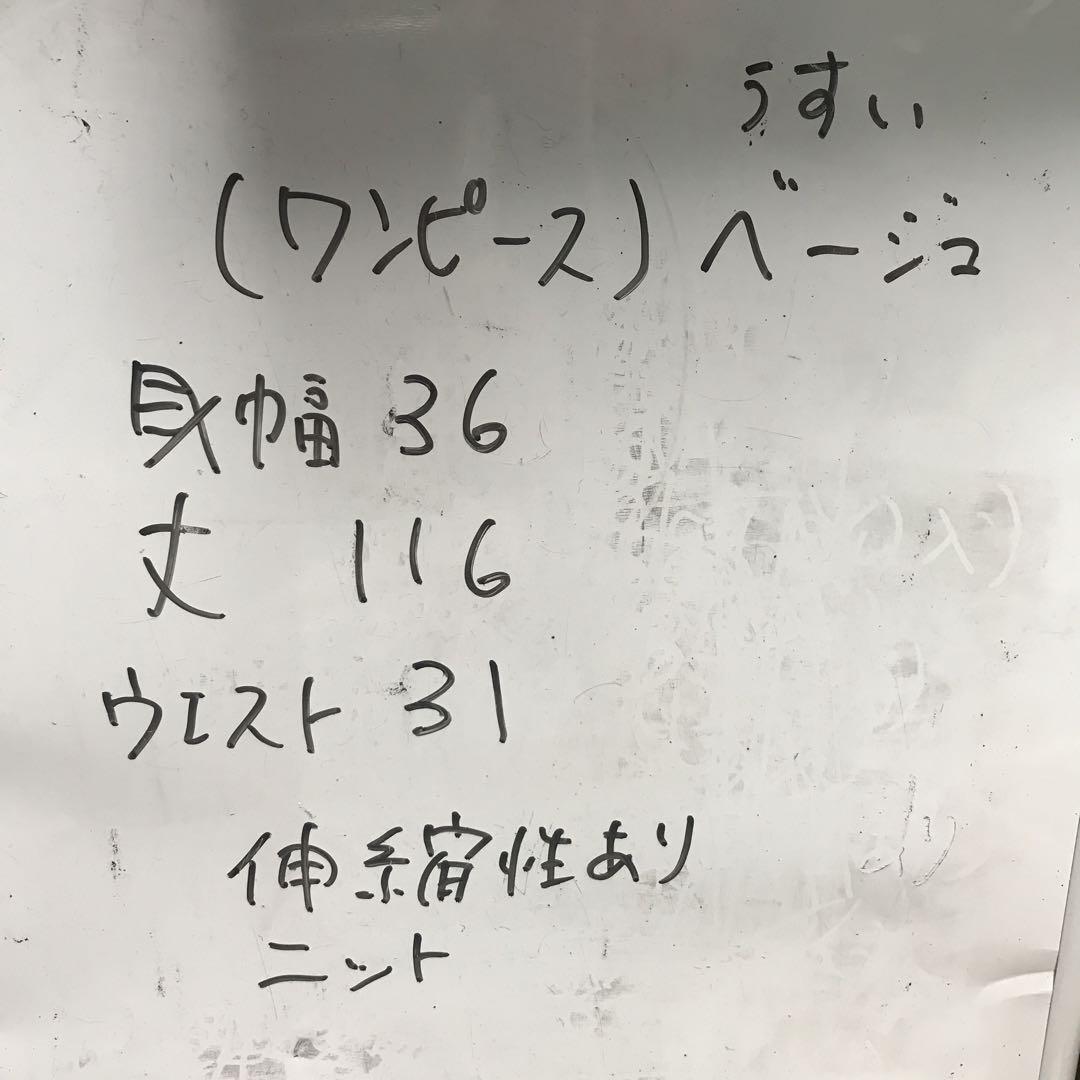 うすい
(ワンピース)ベージュ
身幅 36
丈 116
ウエスト 31
伸縮性あり
ニット